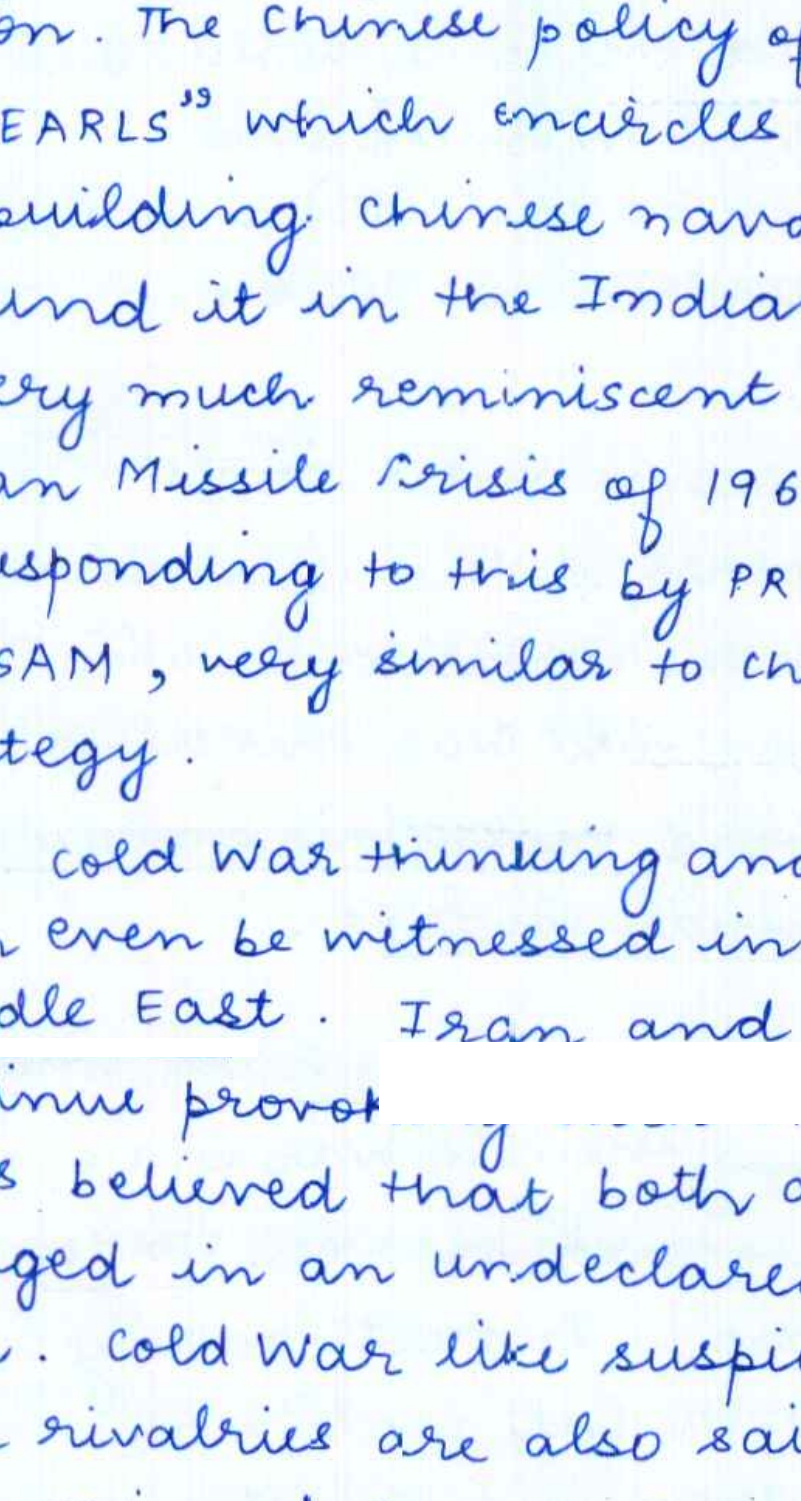 on. The Chinese policy of
EARLS" which encircles
building chinese nava
und it in the India
ery much reminiscent
an Missile Crisis of 196
esponding to this by PR
SAM, very similar to ch
tegy.
cold war thinking and
even be witnessed in
dle East. Iran and
inue
s believed that both
ged in an undeclare
. cold war like suspi
rivalries are also sai